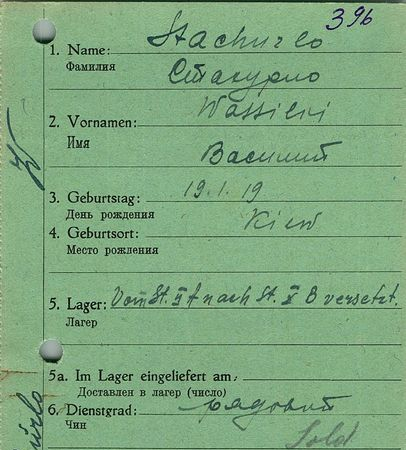 396
1. Name: Stachurlo
Фамилия Стахурло
Wassili
2. Vornamen:
Имя Василий
3. Geburtstag: 19.1.19
День рождения
4. Geburtsort: Kiew
Место рождения
5. Lager: Vom St. II A nach St. X B versetzt.
Лагер
5a. Im Lager eingeliefert am:
Доставлен в лагер (число)
6. Dienstgrad: рядовой
Чин
Sold